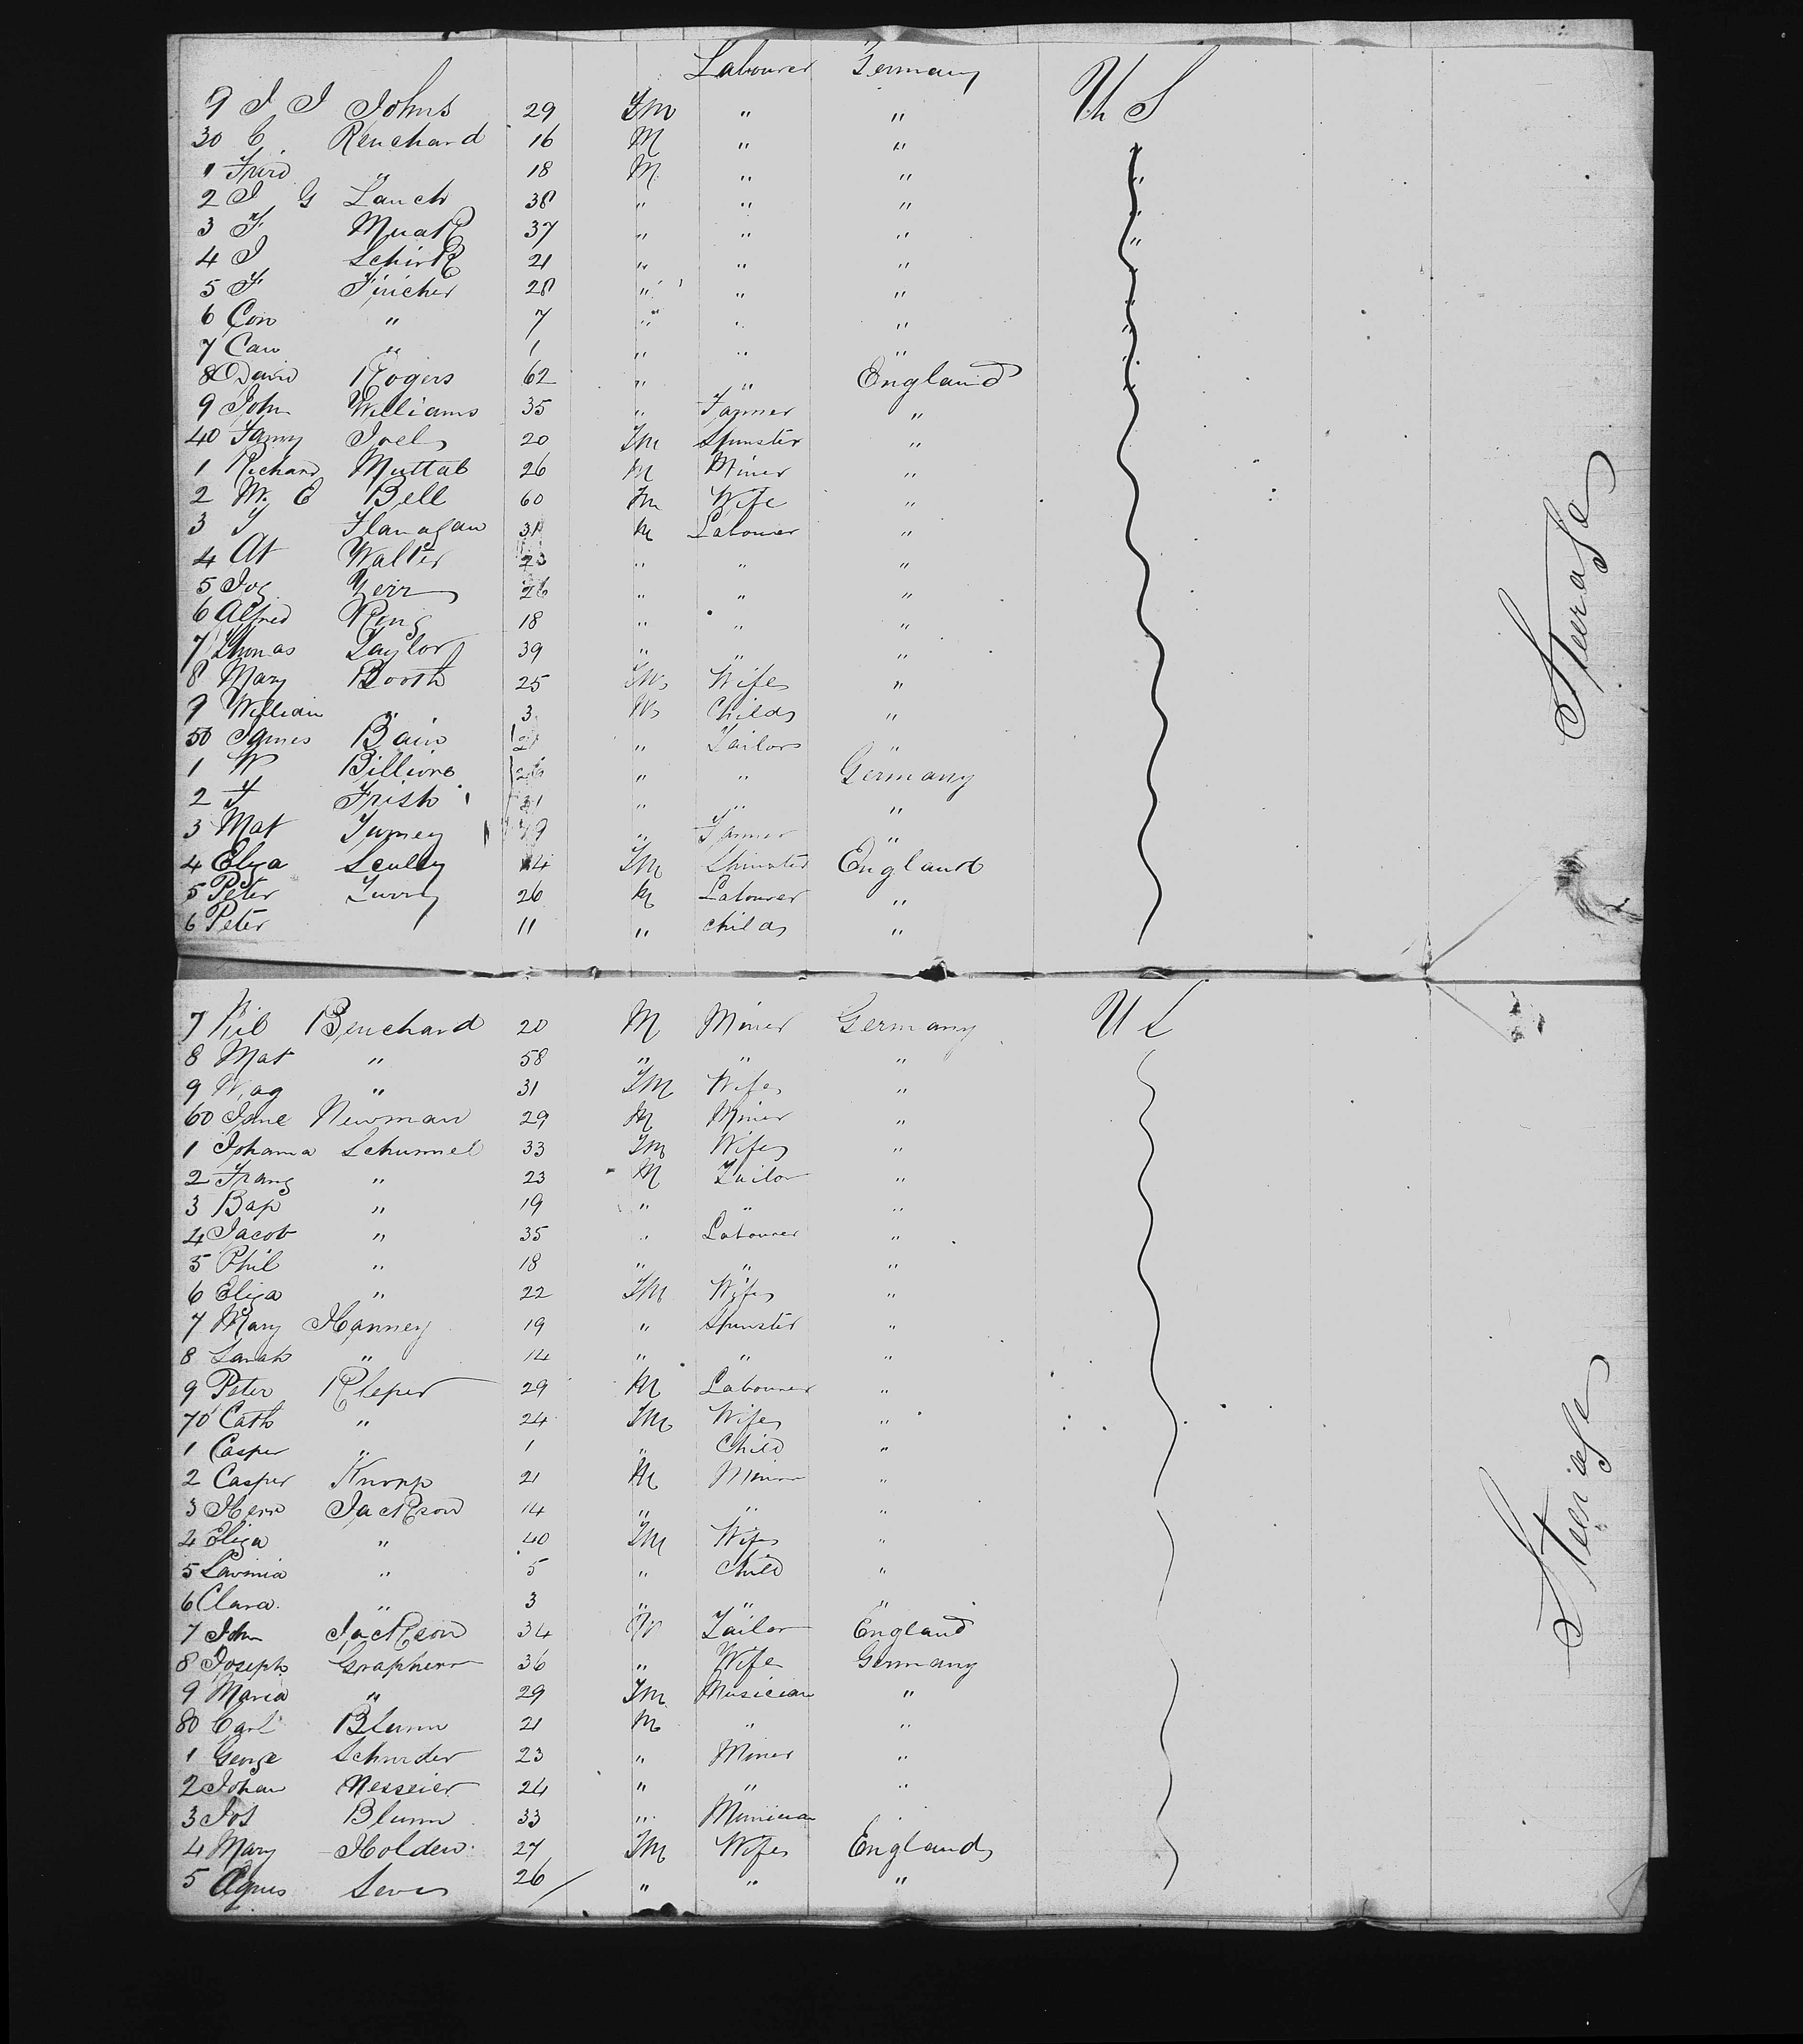 Labourer Germany
9 J J Johns 29 Fm " " U S
30 C. Reuchard 16 M " "
1 Frid " 18 M " " "
2 J G Lauch 38 " " " "
3 F. Muak 37 " " " "
4 J Schirk 21 " " "
5 F Fincher 28 " " "
6 Con " 7 " " " "
7 Car " 1 " " " "
8 David Rogers 62 " " England "
9 John Williams 35 " Farmer "
40 Fanny Joel 20 Fm Spinster "
1 Richard Muttab 26 M Miner "
2 M. E Bell 60 Fm Wife "
3 J Flanagan 31 M Labourer "
4 At Walter 23 " " "
5 Jos 26 " " "
6 Alfred King 18 " " "
7 Thomas Taylor 39 " " "
8 Mary Booth 25 Fm Wife "
9 William " 3 M Child "
50 James Bain 21 " Tailor "
1 W 26 " " Germany
2 F Frish 31 " " "
3 Mat 49 " Farmer "
4 Eliza Scully 14 Fm Spinster England
5 Peter 26 M Labourer "
6 Peter 11 " child "
Steerage
7 Beuchard 20 M Miner Germany U S
8 Mat " 58 " " "
9 Wag " 31 Fm Wife "
60 Jane Newman 29 M Miner "
1 Johanna Schummel 33 Fm Wife "
2 Franz " 23 M Tailor "
3 Bap " 19 " " "
4 Jacob " 35 " Labourer "
5 Phil " 18 " " "
6 Eliza " 22 Fm Wife "
7 Mary Hanney 19 " Spinster "
8 Sarah " 14 " " "
9 Peter Kleper 29 M Labourer "
70 Cath " 24 Fm Wife "
1 Casper " 1 " Child "
2 Casper Knopp 21 M Miner "
3 Herr Jackson 14 " " "
4 Eliza " 40 Fm Wife "
5 Lavinia " 5 " Child "
6 Clara " 3 " " "
7 John Jackson 34 M Tailor England
8 Joseph Graphenr 36 " Wife Germany
9 Maria " 29 Fm Musician "
80 Carl Blumm 21 M " "
1 George Schnider 23 " Miner "
2 Johan Messeier 24 " " "
3 Jos Blumm 33 " Musician "
4 Mary Holden 27 Fm Wife England
5 Agnes 26 " " "
Steerage